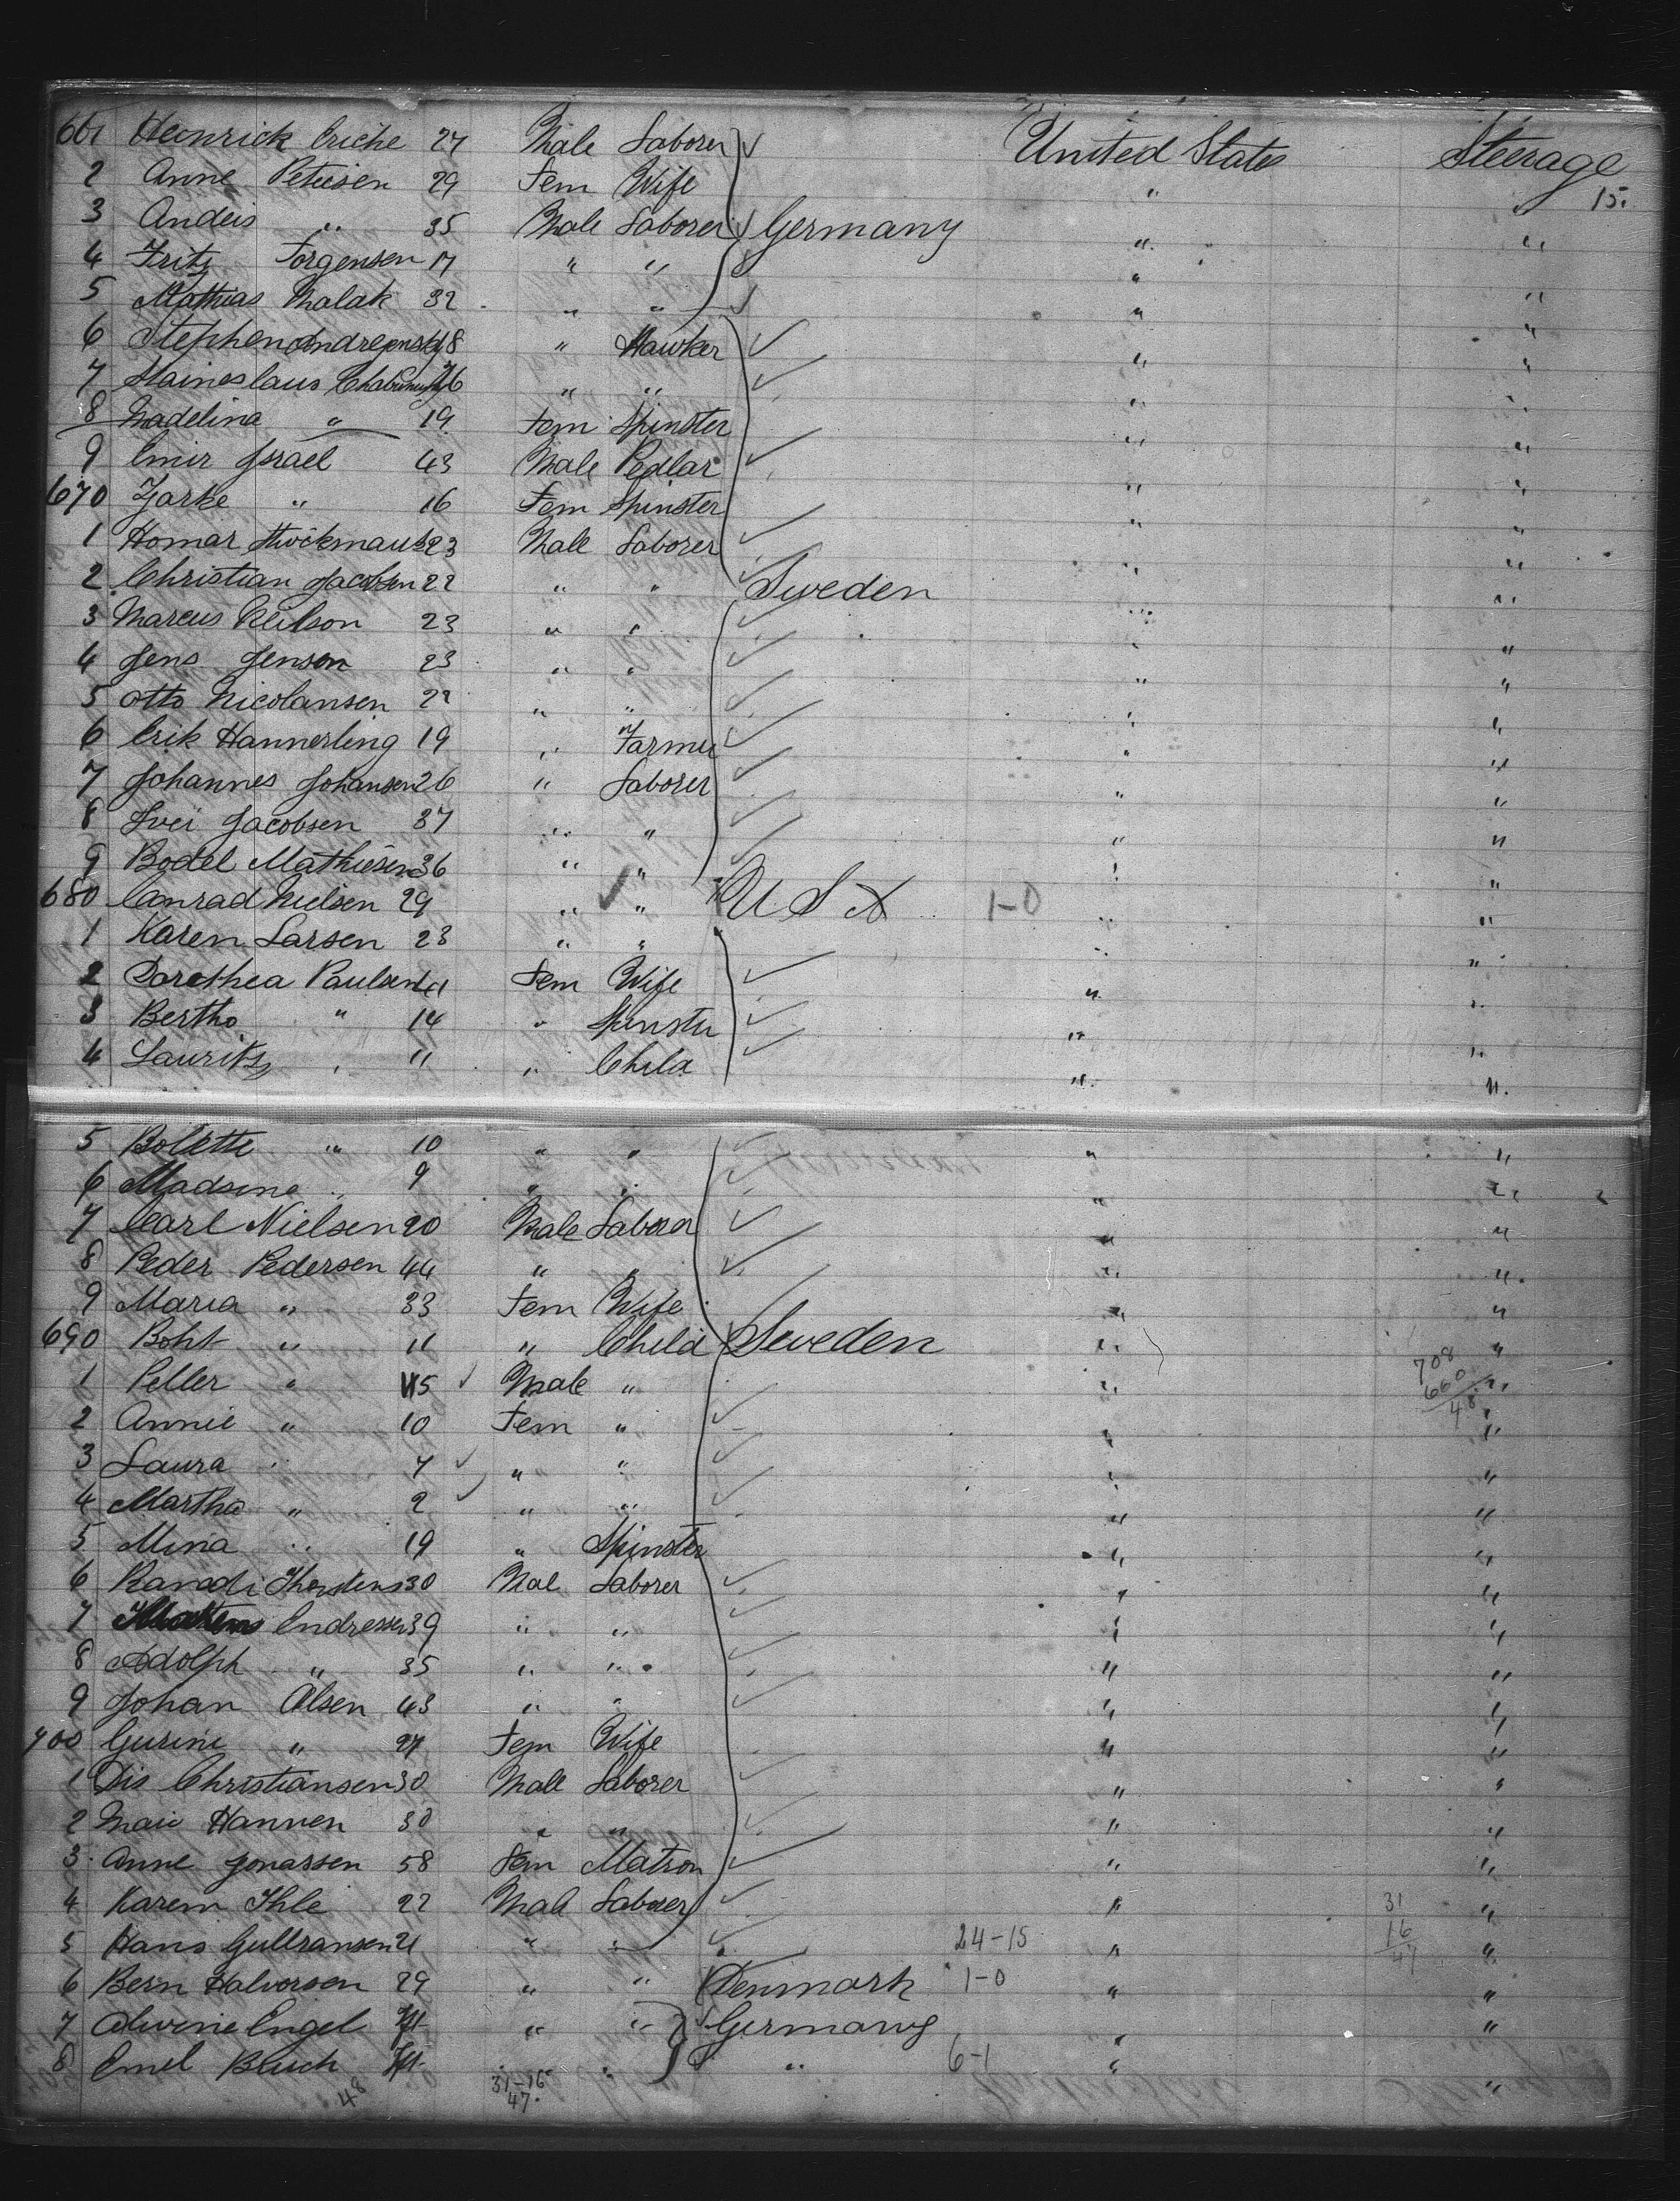 661 Heinrick Criche 27 Male Laborer United States Steerage
15.
2 Anne Petersen 29 Fem Wife " "
3 Anders " 35 Male Laborer Germany " "
4 Fritz Jorgensen 17 " " " "
5 Mathias Malak 32 " " " "
6 Stephen 48 " Hawker " "
7 Staineslaus 26 " " " "
8 Madelina " 19 Fem Spinster " "
9 Emir Israel 43 Male Pedlar " "
670 Zarke " 16 Fem Spinster " "
1 Homar 23 Male Laborer " "
2 Christian Jacobsen 22 " " Sweden " "
3 Marcus Neilson 23 " " " "
4 Jens Jenson 23 " " " "
5 Otto Nicolansen 22 " " " "
6 Erik Hannerling 19 " Farmer " "
7 Johannes Johansen 26 " Laborer " "
8 Jacobsen 37 " " " "
9 Bodel Mathiesen 36 " " " "
680 Conrad Nielsen 29 " " U S A 1-0 " "
1 Karen Larsen 23 " " " "
2 Dorethea Paulsen 41 Fem Wife " "
3 Bertha " 14 " Spinster " "
4 Lauritz " 11 " Child " "
5 Bolette " 10 " " " "
6 Madsine " 9 " " " "
7 Carl Nielsen 20 Male Laborer " "
8 Peder Pedersen 44 " " " "
9 Maria " 33 Fem Wife " "
690 Boht " 11 " Child Sweden " "
708
660
48
1 Peller " 5 Male " " "
2 Annie " 10 Fem " " "
3 Laura " 7 " " " "
4 Martha " 2 " " " "
5 Mina " 19 " Spinster " "
6 Randi Thorstens 30 Mal Laborer " "
7 Endressen 39 " " " "
8 Adolph " 35 " " " "
9 Johan Olsen 43 " " " "
700 Gurine " 27 Fem Wife " "
1 Dis Christiansen 30 Male Laborer " "
2 Hannen 30 " " " "
3 Anne Jonassen 58 Fem Matron " "
4 Karem Ihle 22 Mal Laborer " "
31
16
47
5 Hans Gulbransen 21 " " 24-15 " "
6 Bern Halvorsen 29 " " Denmark 1-0 " "
7 Alwine Engel " " Germany " "
8 Emel Busch " " " 6-1 " "
48
31-16
47.